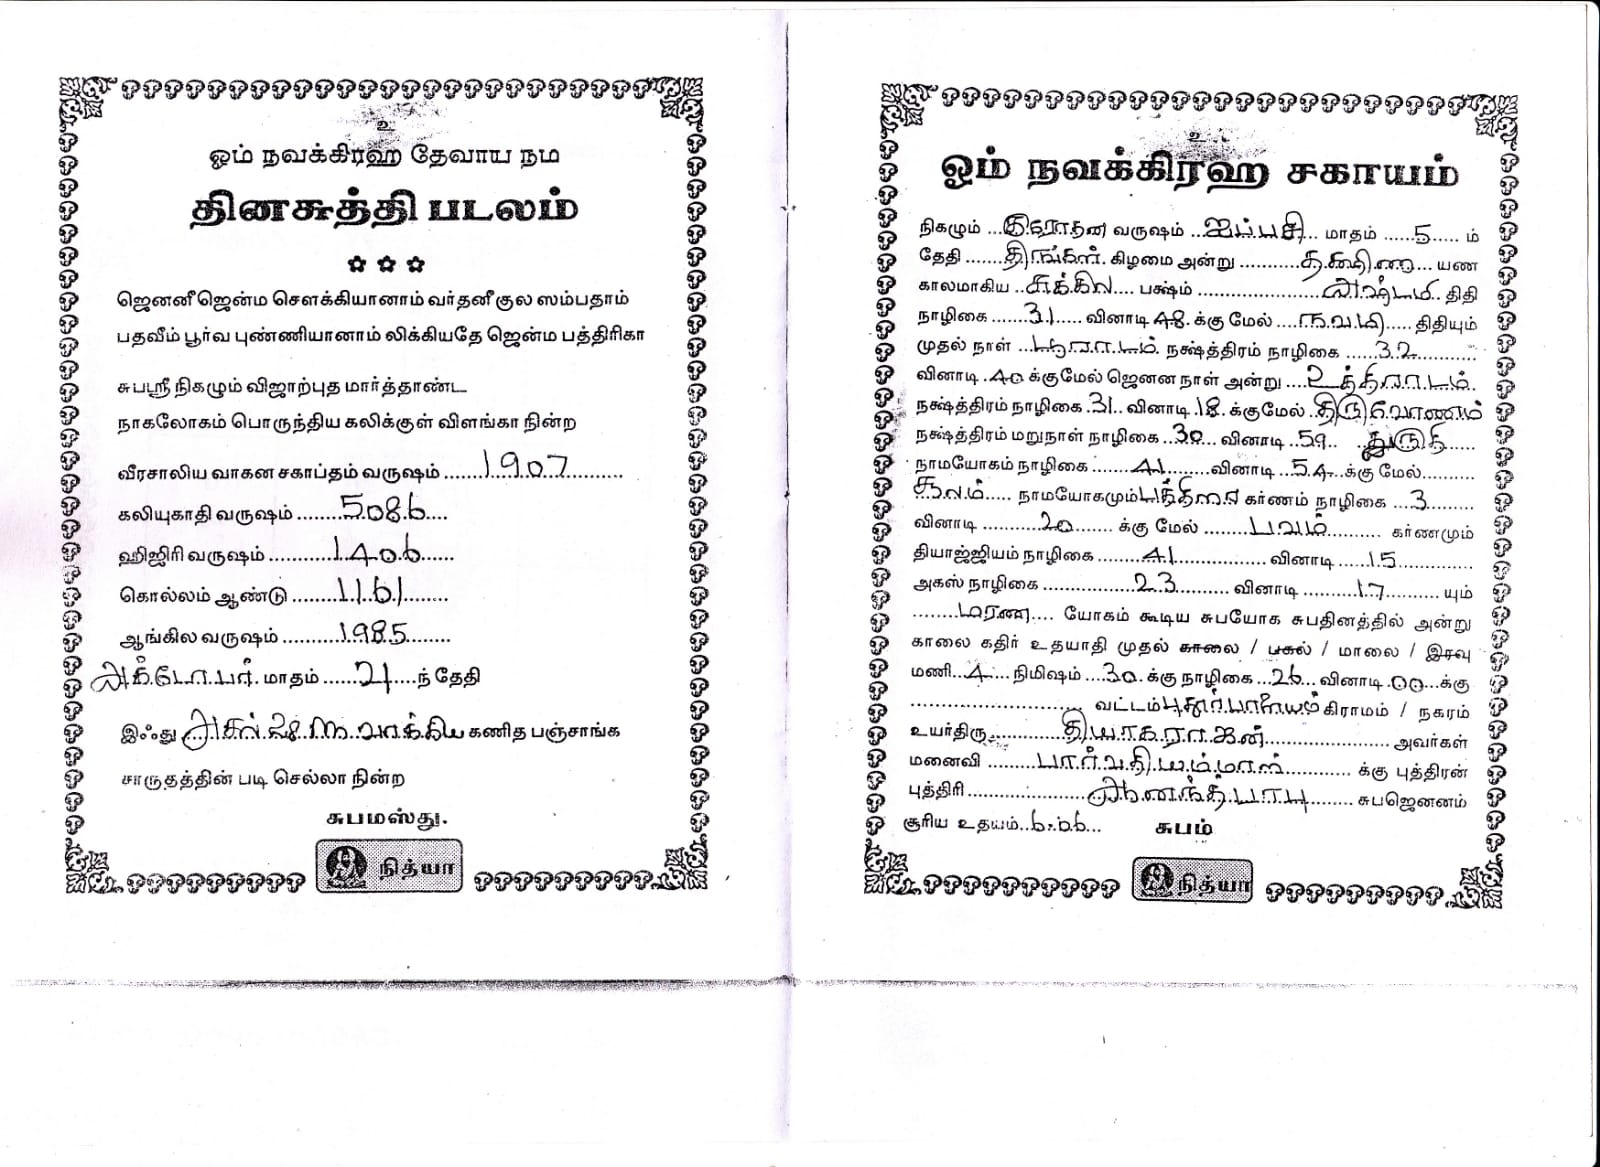 உ
ஓம் நவக்கிரஹ தேவாய நம
தினசுத்தி படலம்
ஜெனனீ ஜென்ம சௌக்கியானாம் வர்தனீ குல ஸம்பதாம்
பதவீம் பூர்வ புண்ணியானாம் லிக்கியதே ஜென்ம பத்திரிகா
சுபஸ்ரீ நிகழும் விஜாற்புத மார்த்தாண்ட
நாகலோகம் பொருந்திய கலிக்குள் விளங்கா நின்ற
வீரசாலிய வாகன சகாப்தம் வருஷம் ......1907...........
கலியுகாதி வருஷம் .........5086....
ஹிஜிரி வருஷம் .............1406......
கொல்லம் ஆண்டு ........1161........
ஆங்கில வருஷம் ..........1985........
அக்டோபர் மாதம் ......21.....ந் தேதி
இஃது அகஸ் 28 வாக்கிய கணித பஞ்சாங்க
சாருதத்தின் படி செல்லா நின்ற
சுபமஸ்து.
நித்யா
உ
ஓம் நவக்கிரஹ சகாயம்
நிகழும் ...குரோதன வருஷம் ..ஐப்பசி... மாதம் ......5..... ம்
தேதி .......திங்கள். கிழமை அன்று ...........தக்ஷிண... யண
காலமாகிய ..சுக்கில.... பக்ஷம் ......................அஷ்டமி.. திதி
நாழிகை .....31..... வினாடி 48. க்கு மேல் ....நவமி..... திதியும்
முதல் நாள் ...பூராடம். நக்ஷத்திரம் நாழிகை ......32...........
வினாடி .40 க்குமேல் ஜெனன நாள் அன்று ....உத்திராடம்.
நக்ஷத்திரம் நாழிகை .31.. வினாடி .18. க்குமேல் ..திருவோணம்
நக்ஷத்திரம் மறுநாள் நாழிகை ..30... வினாடி ..59.. ..துருதி.....
நாமயோகம் நாழிகை .......41..........வினாடி ...54...க்கு மேல்..........
சூலம்..... நாமயோகமும் பத்திரை கர்ணம் நாழிகை ...3.........
வினாடி ...........20........ க்கு மேல் ........பவம்........... கர்ணமும்
தியாஜ்ஜியம் நாழிகை ........41................ வினாடி .....15..............
அகஸ் நாழிகை ................23........... வினாடி .........17.......... யும்
........மரண.... யோகம் கூடிய சுபயோக சுபதினத்தில் அன்று
காலை கதிர் உதயாதி முதல் காலை / பகல் / மாலை / இரவு
மணி...4... நிமிஷம் ....30. க்கு நாழிகை ...26... வினாடி .00...க்கு
.............................. வட்டம் புதூர்பாளையம் கிராமம் / நகரம்
உயர்திரு..............தியாகராஜன்........................ அவர்கள்
மனைவி .........பார்வதியம்மாள்............ க்கு புத்திரன்
புத்திரி......................ஆனந்தபாபு........ சுபஜெனனம்
சூரிய உதயம்..6.06... சுபம்
நித்யா